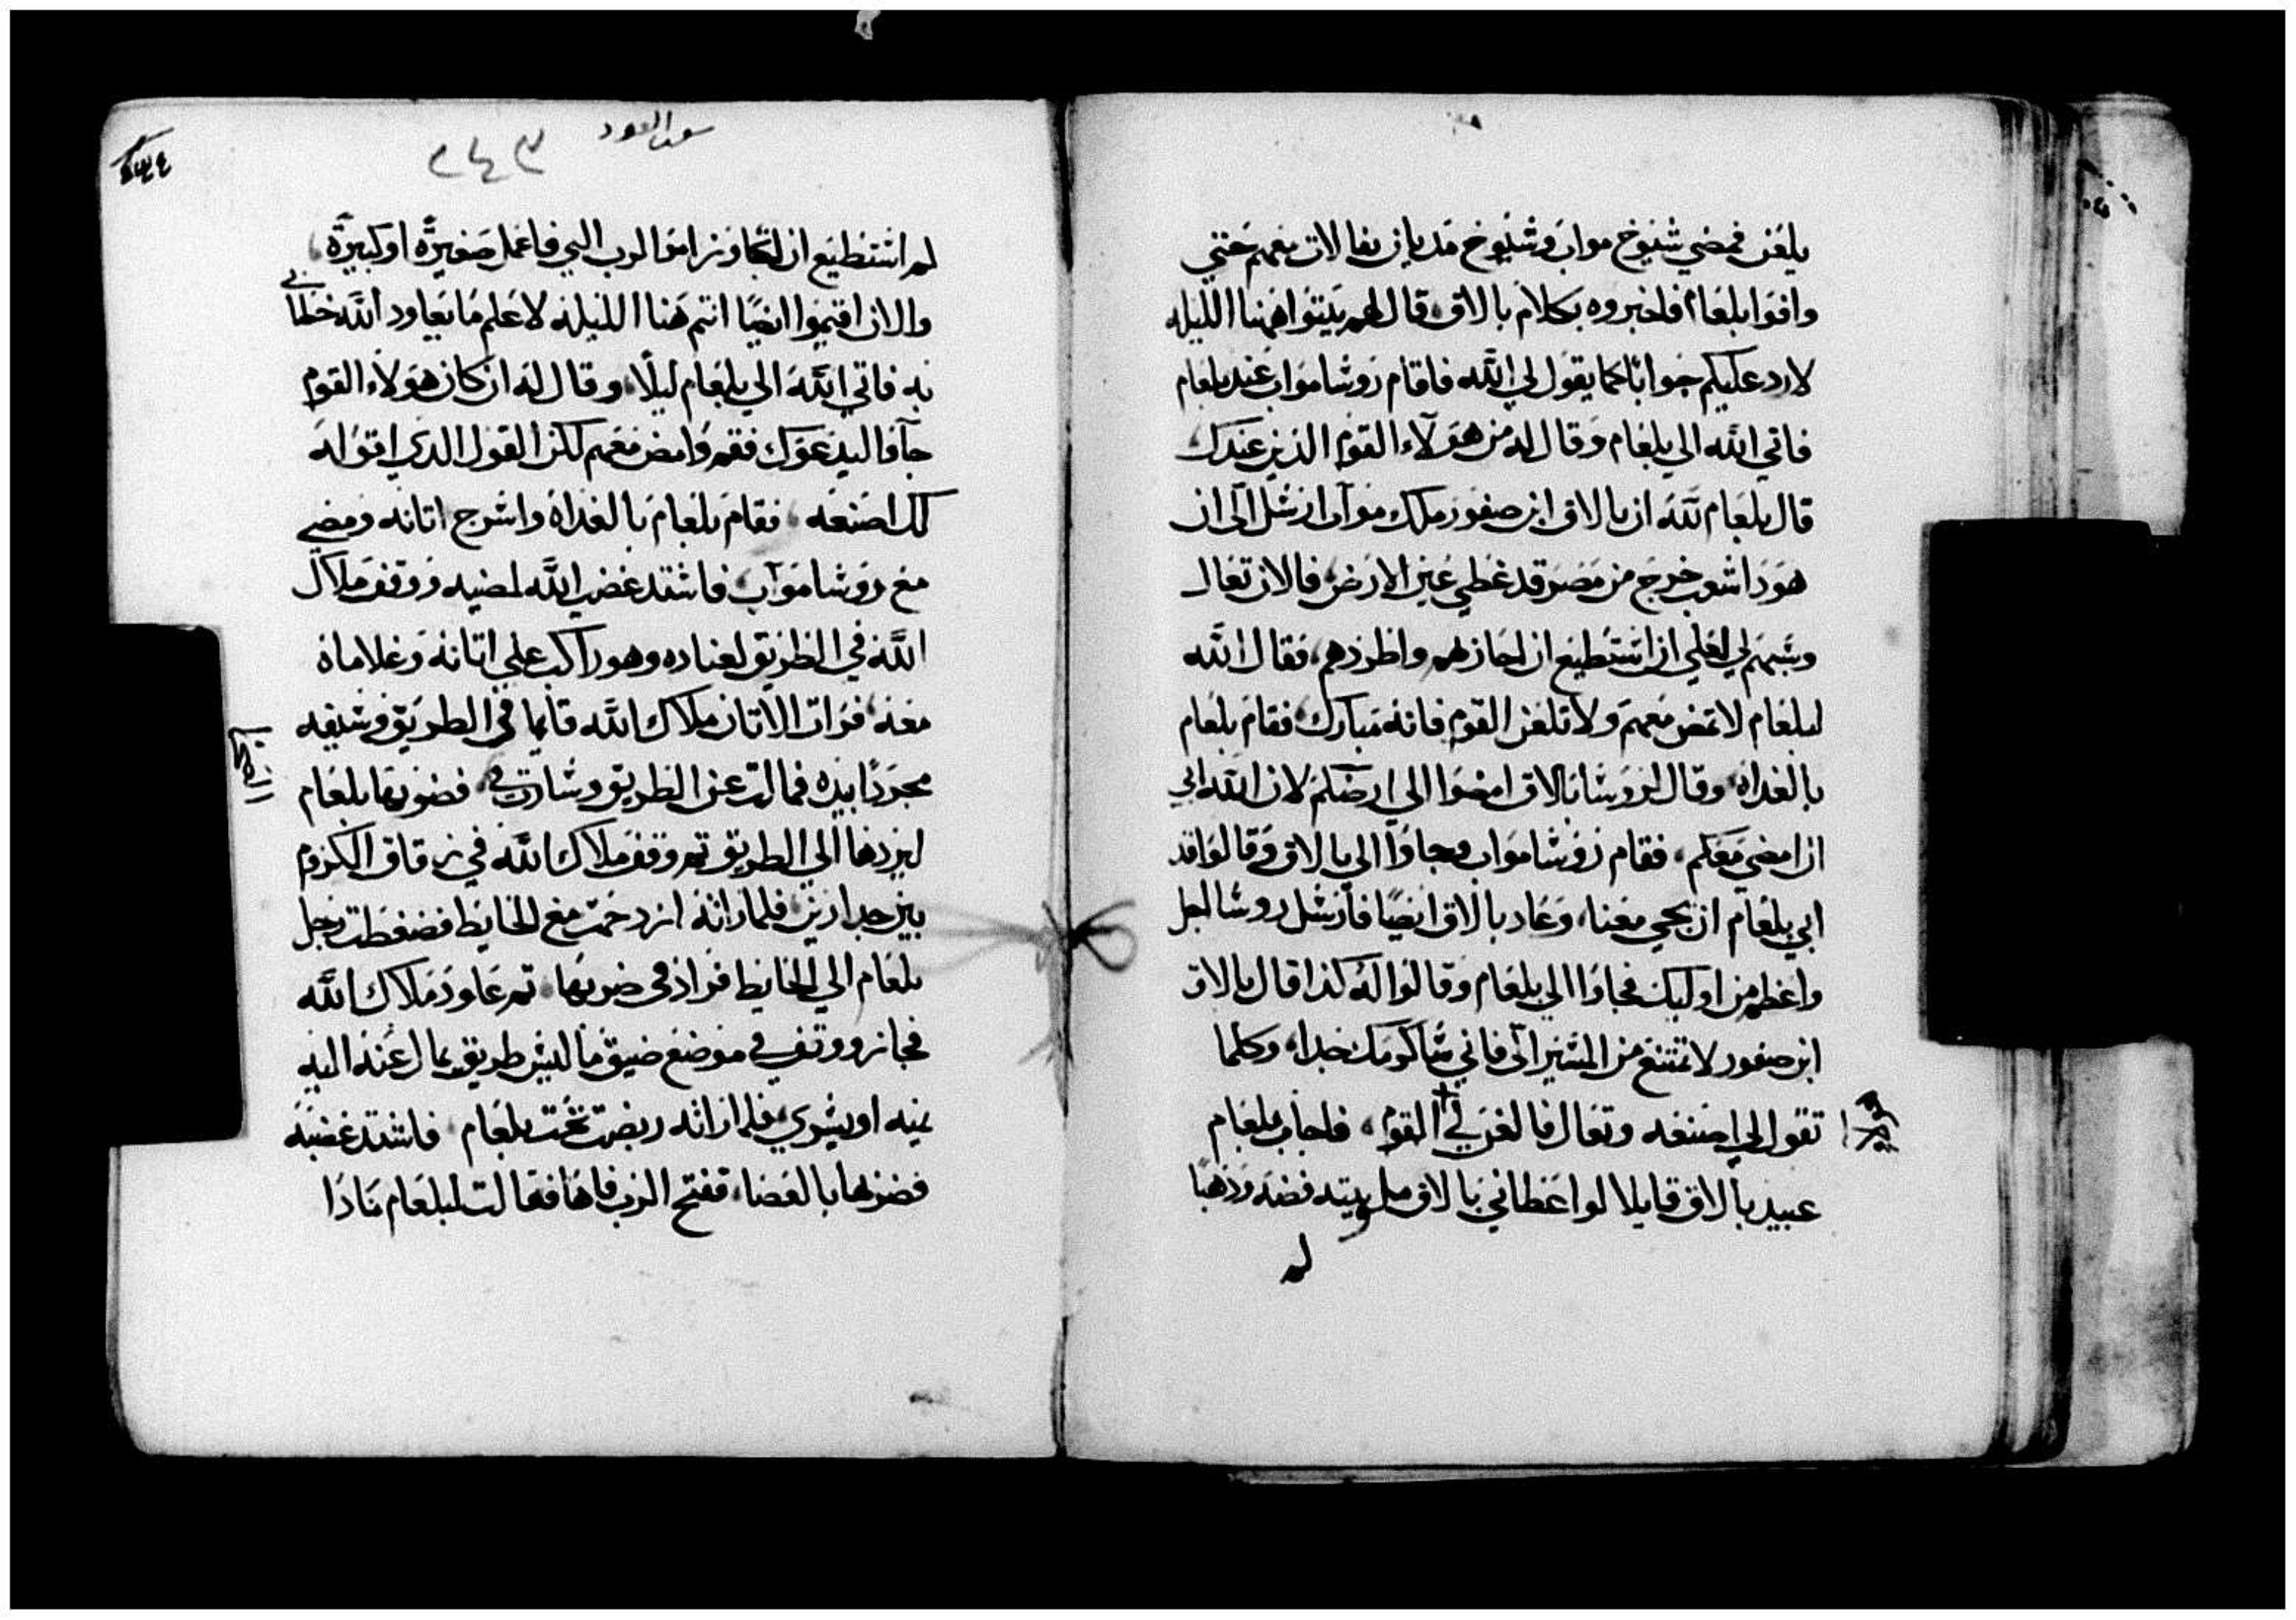 يلعن فمضي شيوخ مواب وشيوخ مديان بفالات معهم حتي
وافوا بلعام فاخبروه بكلام بالاق قال لهم بيتوا ههنا الليله
لارد عليكم جوابا كما يقول لي الله فاقام روسا مواب عند بلعام
فاتي الله الي بلعام وقال له من هولاء القوم الذين عندك
قال بلعام لله ان بالاق ابن صفور ملك مواب ارسل الي ان
هودا شعب خرج من مصر قد غطي عين الارض فالان تعال
وسبهم لي لعلي ان استطيع ان احاربهم واطردهم فقال الله
لبلعام لا تمض معهم ولا تلعن القوم فانه مبارك فقام بلعام
بالغداه وقال لروسا بالاق امضوا الي ارضكم لان الله ابي
ان امضي معكم فقام روسا مواب وجاوا الي بالاق وقالوا قد
ابي بلعام ان يجي معنا وعاد بالاق ايضا فارسل روسا اجل
واعظم من اوليك فجاوا الي بلعام وقالوا له كذا قال بالاق
ابن صفور لا تمتنع من المسير الي فاني ساكرمك جدا وكلما
تقول لي اصنعه وتعال فالعن لي القوم فاجاب بلعام
عبيد بالاق قايلا لو اعطاني بالاق مل بيته فضه وذهبا
لم
٢٤٣
لم استطيع ان اتجاوز امر الرب الهي فاعمل صغيرة او كبيرة
والان اقيموا ايضا انتم هنا الليله لاعلم ما يعاود الله خطابي
به فاتي الله الي بلعام ليلا وقال له ان كان هولاء القوم
جاوا ليدعوك فقم وامض معهم لكن القول الدي اقوله
لك اصنعه فقام بلعام بالغداه واسرج اتانه ومضي
مع روسا مواب فاشتد غضب الله لمضيه ووقف ملاك
الله في الطريق لعناده وهو راكب علي اتانه وغلاماه
معه فرات الاتان ملاك الله قايما في الطريق وسيفه
مجردا بيده فمالت عن الطريق وسارت في فضربها بلعام
ليردها الي الطريق ثم وقف ملاك الله في زقاق الكروم
بين جدارين فلما راته ازدحمت مع الحايط فضغطت رجل
بلعام الي الحايط فزاد في ضربها ثم عاود ملاك الله
فجاز ووقف في موضع ضيق ما ليس طريق يمال عنه اليه
يمنه او يسري فلما راته ربضت تحت بلعام فاشتد غضبه
فضربها بالعصا ففتح الرب فاها فقالت لبلعام مادا